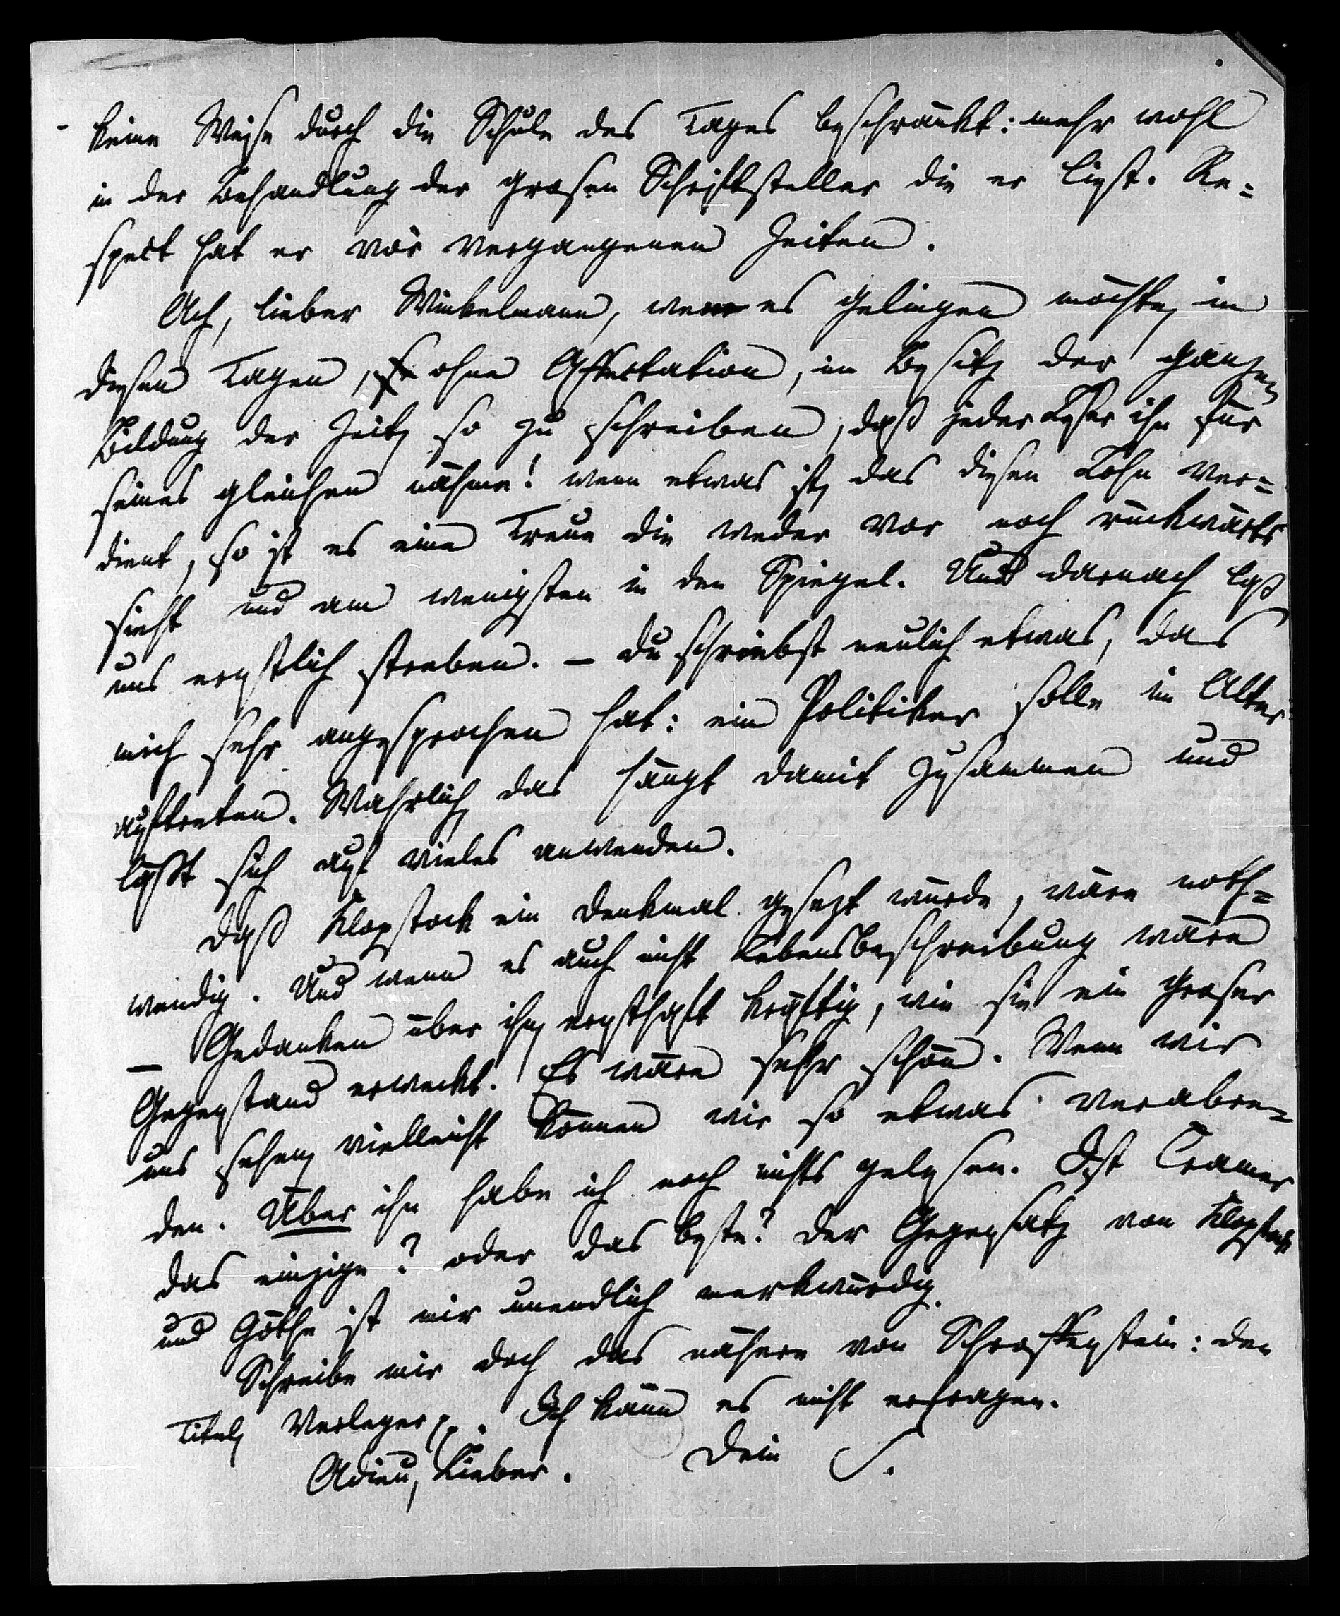 keine Weise durch die Schule des Tages beschränkt: mehr wohl
in der Behandlung der grosen Schriftsteller die er liest. Re=
spect hat er vor vergangenen Zeiten.
Ach, lieber Winkelmann, wenn es gelingen möchte, in
diesen Tagen, ohne Affectation, im Besitz der ganzen
Bildung der Zeit, so zu schreiben, daß jeder Leser ihn für
seines gleichen nähme! wenn etwas ist, das diesen Lohn ver=
dient, so ist es eine Treue die weder vor noch rückwärts
sieht und am wenigsten in den Spiegel. Und darnach laß
uns ernstlich streben. – Du schriebst neulich etwas, das
mich sehr angesprochen hat: ein Politiker solle im Alter
auftreten. Wahrlich, das hängt damit zusammen und
läßt sich auf vieles anwenden.
Daß Klopstock ein Denkmal gesezt würde, wäre noth=
wendig. Und wenn es auch nicht Lebensbeschreibung wäre
– Gedanken über ihn, ernsthaft kräftig, wie sie ein groser
Gegenstand erweckt. Es wäre sehr schön. Wenn wir
uns sehen, vielleicht können wir so etwas verabre=
den. Über ihn habe ich noch nichts gelesen. Ist Cramer
das einzige? oder das beste? Der Gegensatz von Klopstock
und Göthe ist mir unendlich merkwürdig.
Schreibe mir doch das nähere von Schroffenstein: den
Titel, Verleger pp. Ich kann es nicht erfragen.
Adieu, Lieber. Dein S.